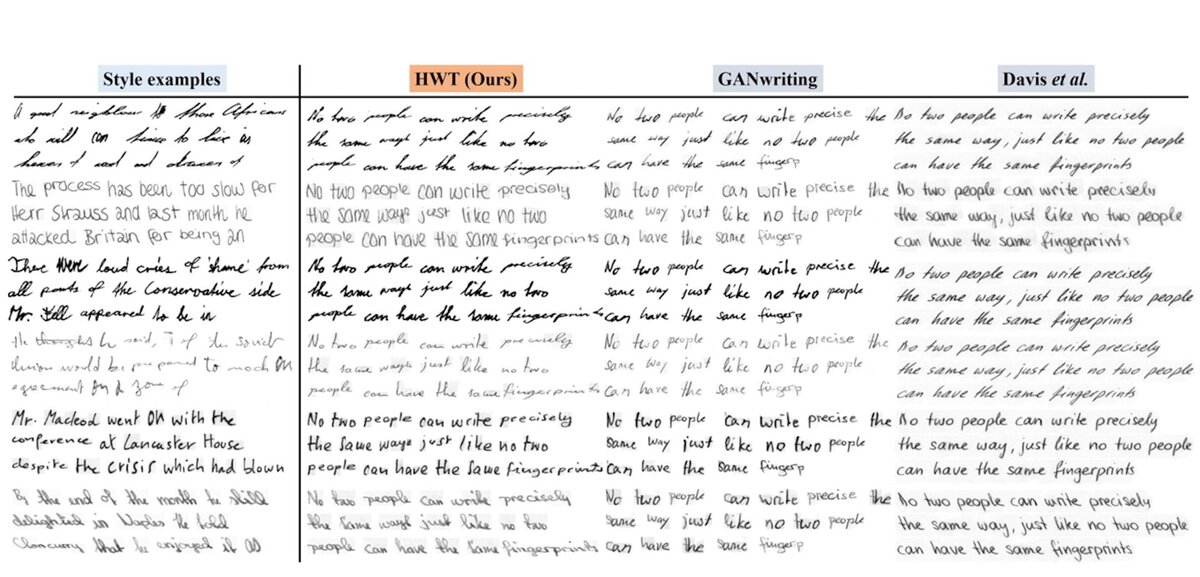 Style examples HWT (Ours) GANwriting Davis et al.
A good neighbour to those Africans
who will come to live in
No two people can write precisely
the same ways just like no two
people can have the same fingerprints
No two people can write precise the
same way just like no two people
can have the same fingerp
No two people can write precisely
the same way, just like no two people
can have the same fingerprints
The process has been too slow for
Herr Strauss and last month he
attacked Britain for being an
No two people can write precisely
the same ways just like no two
people can have the same fingerprints
No two people can write precise the
same way just like no two people
can have the same fingerp
No two people can write precisely
the same way, just like no two people
can have the same fingerprints
There were loud cries of 'shame' from
all parts of the Conservative side
Mr. Fell appeared to be in
No two people can write precisely
the same ways just like no two
people can have the same fingerprints
No two people can write precise the
same way just like no two people
can have the same fingerp
No two people can write precisely
the same way, just like no two people
can have the same fingerprints
he said, of the Soviet
would be prepared to much on
agreement
No two people can write precisely
the same ways just like no two
people can have the same fingerprints
No two people can write precise the
same way just like no two people
can have the same fingerp
No two people can write precisely
the same way, just like no two people
can have the same fingerprints
Mr. Macleod went on with the
conference at Lancaster House
despite the crisis which had blown
No two people can write precisely
the same ways just like no two
people can have the same fingerprints
No two people can write precise the
same way just like no two people
can have the same fingerp
No two people can write precisely
the same way, just like no two people
can have the same fingerprints
By the end of the month he still
delighted in Naples he told
Clancurry that he enjoyed it as
No two people can write precisely
the same ways just like no two
people can have the same fingerprints
No two people can write precise the
same way just like no two people
can have the same fingerp
No two people can write precisely
the same way, just like no two people
can have the same fingerprints